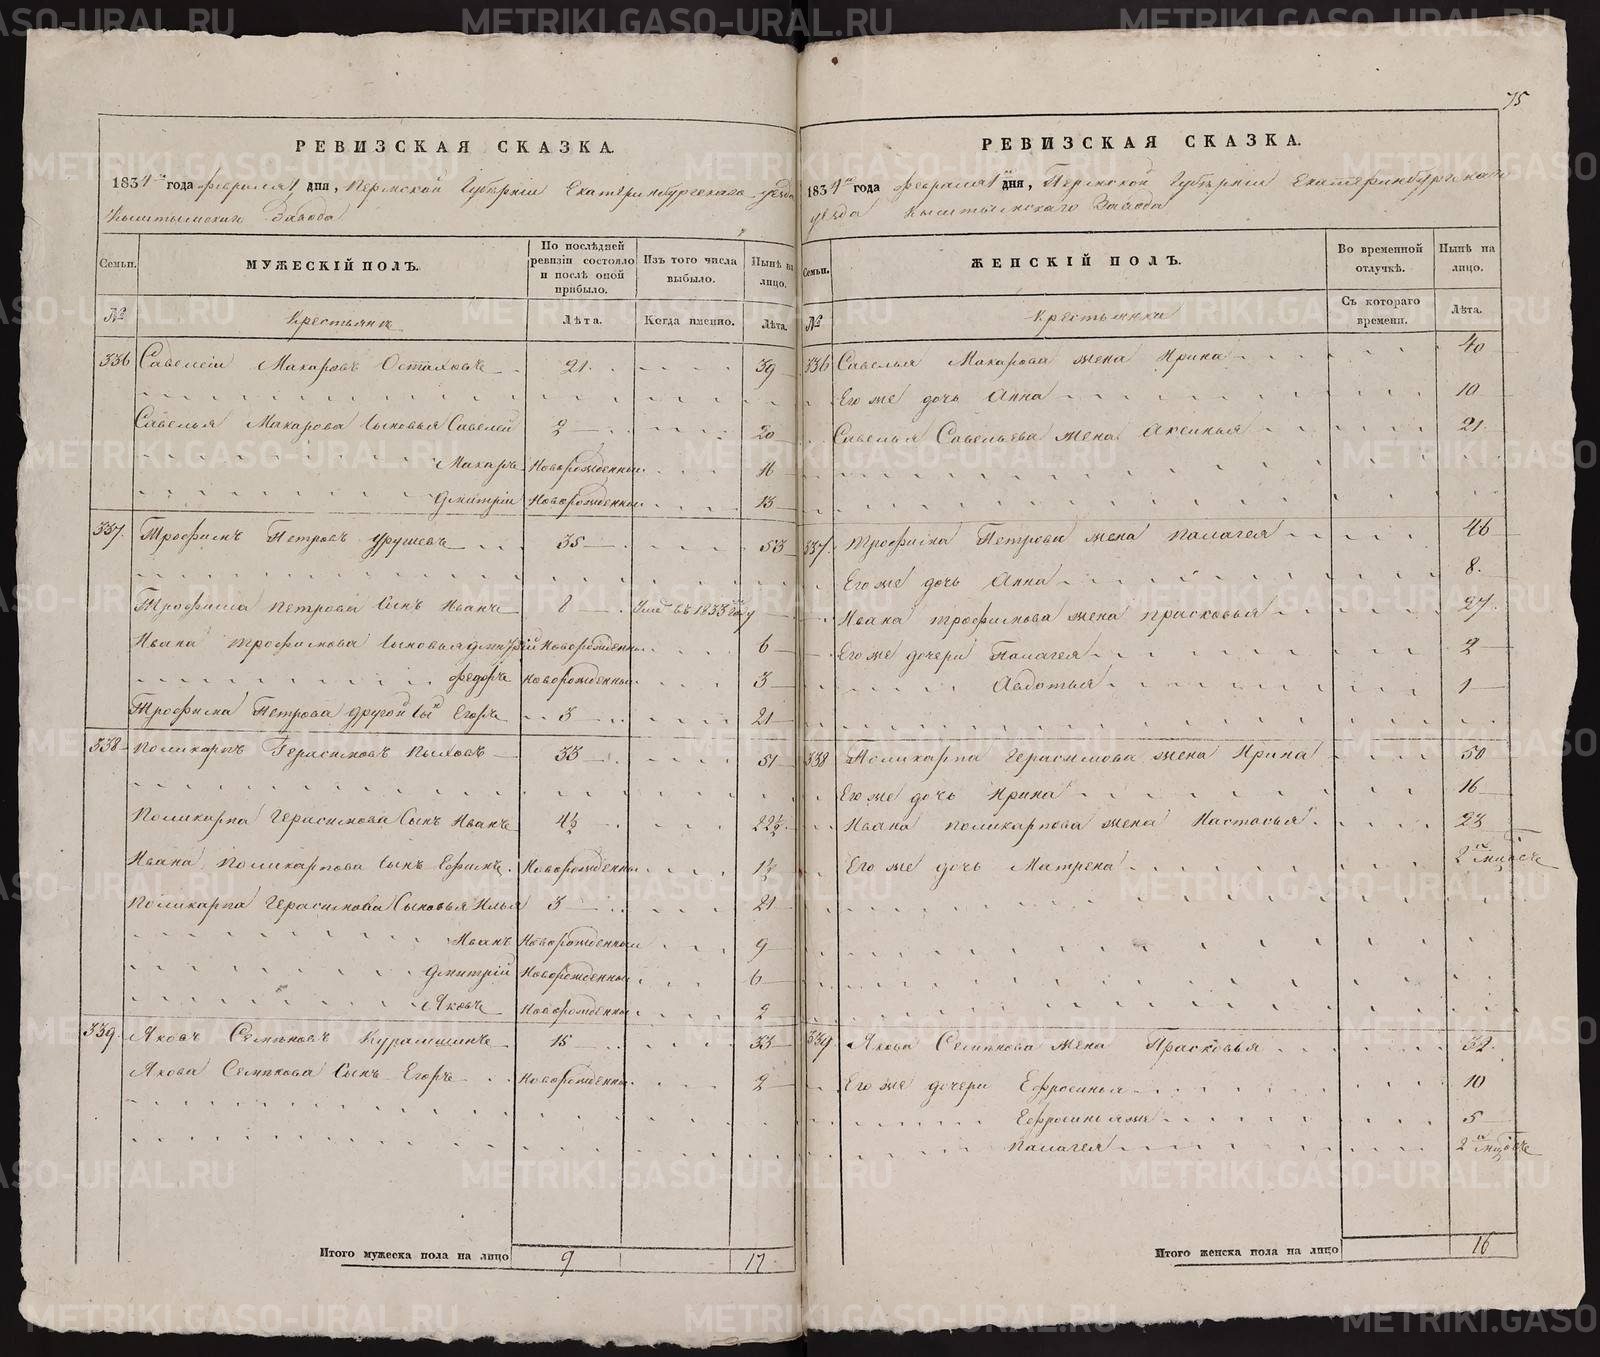 75
РЕВИЗСКАЯ СКАЗКА.
1834 года февраля 1 дня, Пермской Губерніи Екатеринбургскаго уезда
Кыштымскаго Завода
Семьи.
МУЖЕСКІЙ ПОЛЪ.
По послѣдней ревизіи состояло и послѣ оной прибыло.
Изъ того числа выбыло.
Нынѣ на лицо.
№
Крестьяне
Лѣта.
Когда именно.
Лѣта.
336 Савелей Макаровъ Остаховъ 21. 39
Савелья Макарова Сыновья Савелей 2 20
Макаръ Новорожденный 16
Дмитрій Новорожденный 13
337. Трофимъ Петровъ Урушевъ 35 53
Трофима Петрова Сынъ Иванъ 8 Умеръ въ 1833 году
Ивана Трофимова Сыновья Дмитрій Новорожденны 6
Федоръ Новорожденный 3
Трофима Петрова другой Сынъ Егоръ 3 21
338 Поликарпъ Герасимовъ Пыховъ 33 51
Поликарпа Герасимова Сынъ Иванъ 4½ 22½
Ивана Поликарпова Сынъ Ефимъ Новорожденны 1½
Поликарпа Герасимова Сыновья Илья 3 21
Иванъ Новорожденный 9
Дмитрій Новорожденный 6
Яковъ Новорожденны 2
339. Яковъ Семеновъ Курамшинъ 15 33
Якова Семенова Сынъ Егоръ Новорожденны 2
Итого мужеска пола на лицо 9 17
РЕВИЗСКАЯ СКАЗКА.
1834 года февраля 1 дня, Пермской Губерніи Екатеринбургскаго
уезда Кыштымскаго Завода
Семьи.
ЖЕНСКІЙ ПОЛЪ.
Во временной отлучкѣ.
Нынѣ на лицо.
№
Крестьянки
Съ котораго времени.
Лѣта.
336 Савелья Макарова жена Ирина 40
Его же дочь Анна 10
Савелья Савельева жена Аксинья 21.
337. Трофима Петрова жена Палагея 46
Его же дочь Анна 8.
Ивана Трофимова жена Прасковья 27.
Его же дочери Палагея 2
Авдотья 1
338 Поликарпа Герасимова жена Ирина 50
Его же дочь Ирина 16
Ивана Поликарпова жена Настасья 23
Его же дочь Матрена 2
339 Якова Семенова жена Прасковья 32.
Его же дочери Ефросинья 10
Ефросинья же 5
Палагея 2
Итого женска пола на лицо 16
METRIKI.GASO-URAL.RU